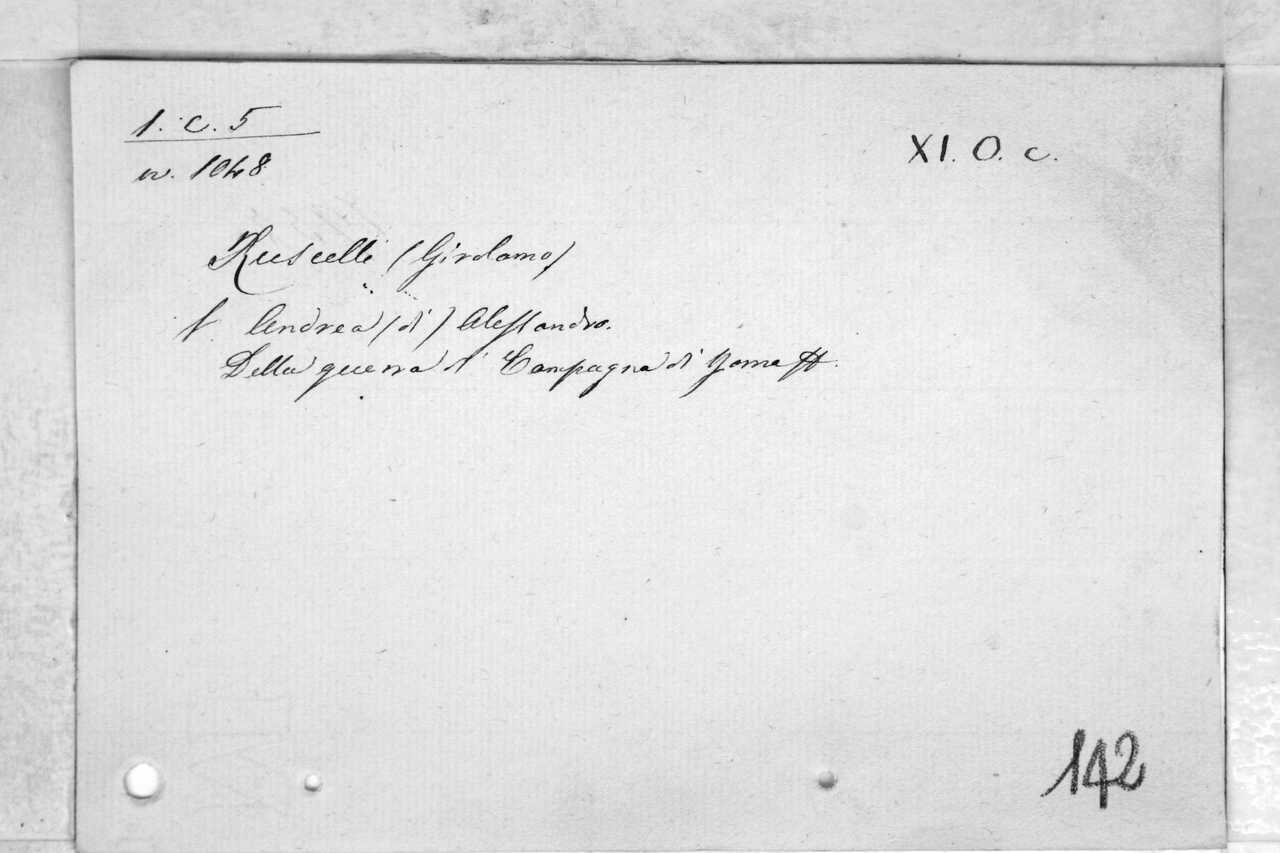 1. C. 5
XI. O. c.
n. 1048
Ruscelli (Girolamo)
f. Andrea (di) Alessandro.
Della guerra di Campagna di Roma
142